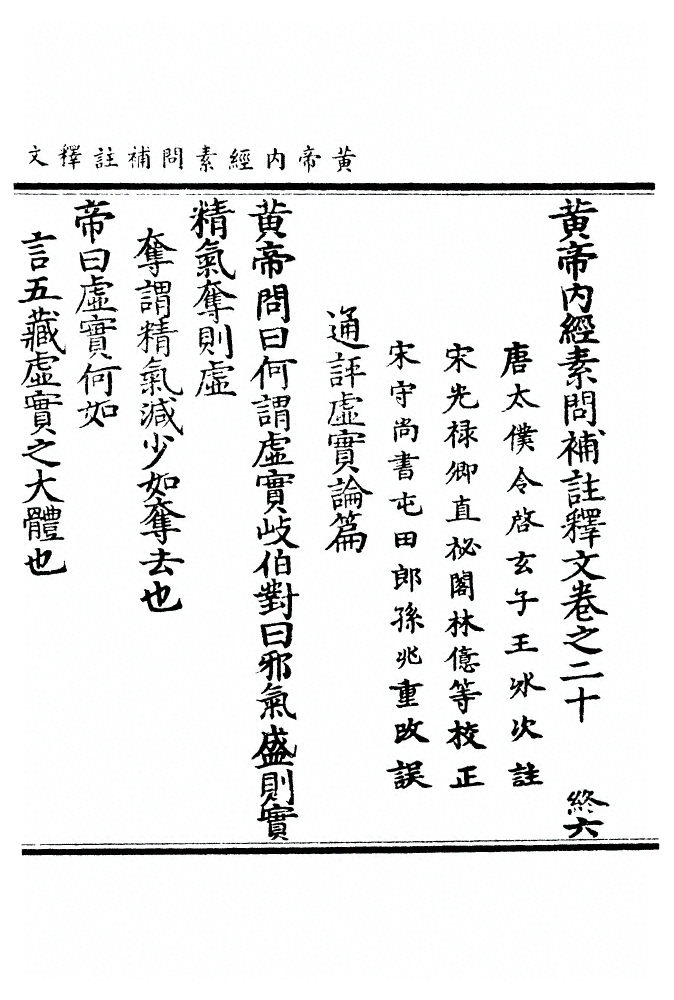 黃帝內經素問補註釋文
黃帝內經素問補註釋文卷之二十 終六
唐太僕令啓玄子王冰次註
宋光祿卿直祕閣林億等校正
宋守尚書屯田郎孫兆重改誤
通評虛實論篇
黃帝問曰何謂虛實岐伯對曰邪氣盛則實
精氣奪則虛
奪謂精氣減少如奪去也
帝曰虛實何如
言五藏虛實之大體也